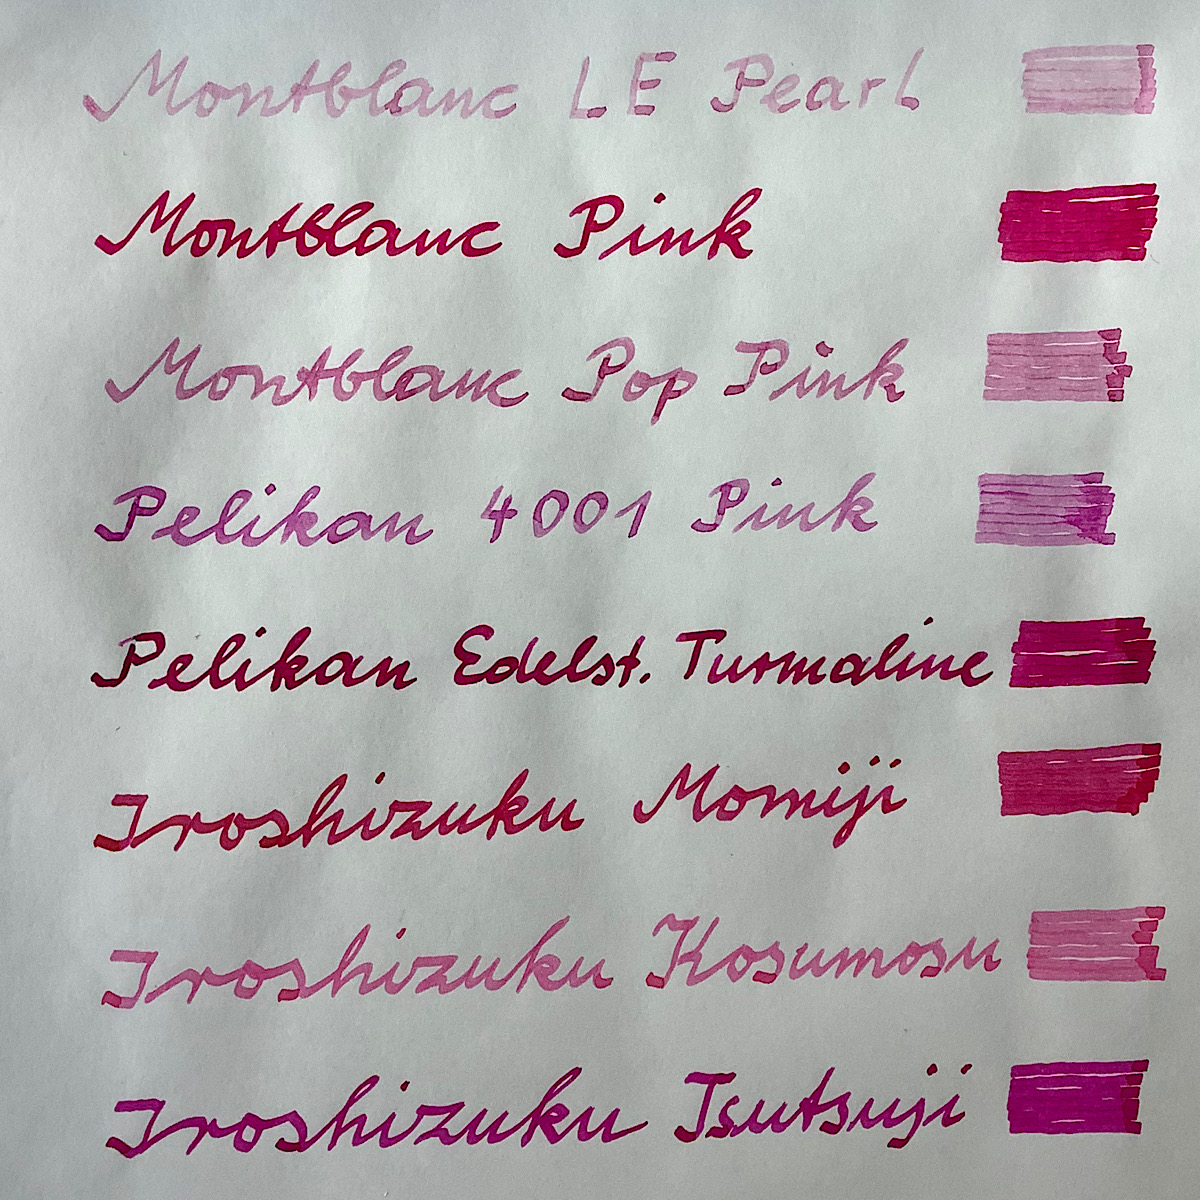 Montblanc LE Pearl
Montblanc Pink
Montblanc Pop Pink
Pelikan 4001 Pink
Pelikan Edelst. Turmaline
Iroshizuku Momiji
Iroshizuku Kosumosu
Iroshizuku Tsutsuji